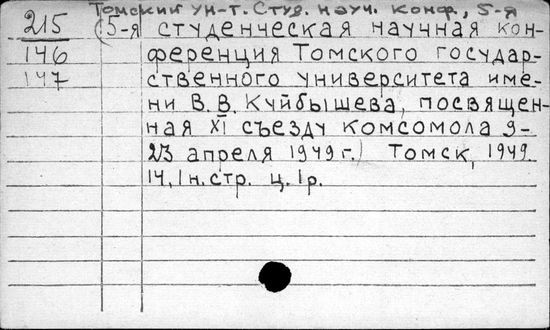 Томский ун-т. Студ. науч. конф., 5-я
215 (5-я студенческая научная кон-
146 ференция Томского государ-
147 ственного университета име-
ни В. В. Куйбышева, посвящен-
ная XI съезду комсомола 9-
23 апреля 1949 г.) Томск, 1949.
14, 1 н. стр. ц. 1 р.